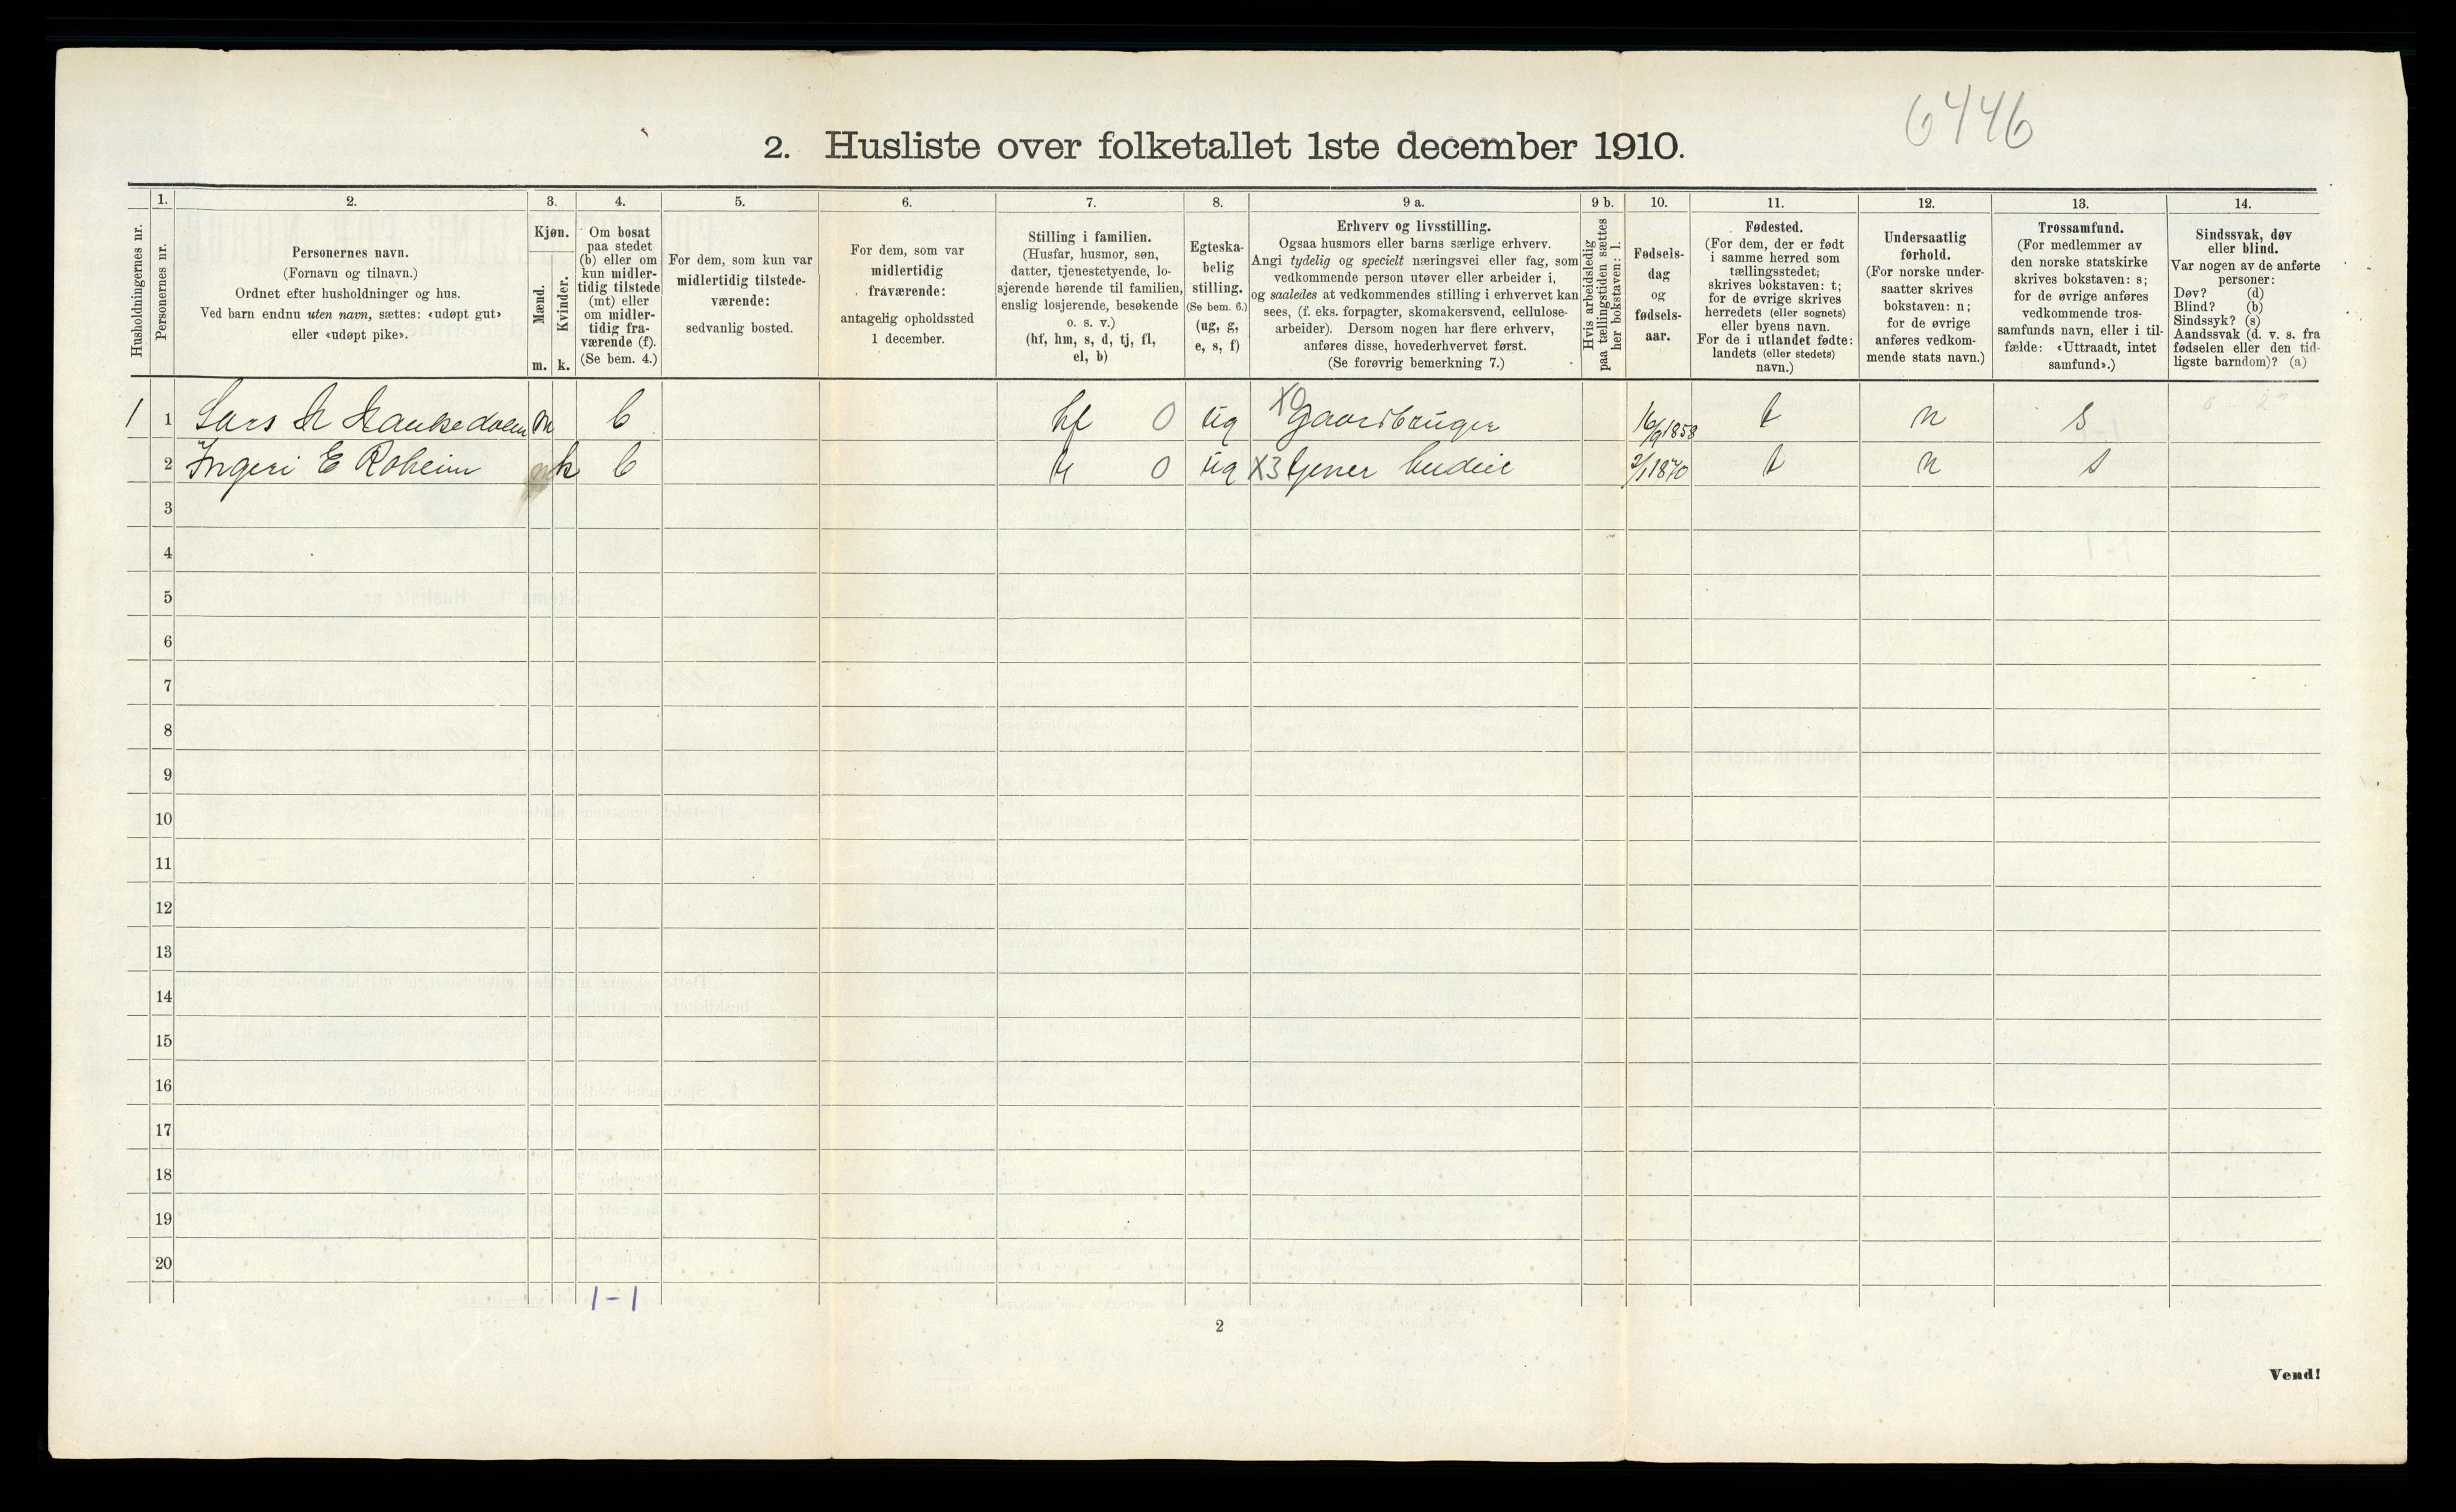 6446
2. Husliste over folketallet 1ste december 1910.
Husholdningernes nr.
1.
Personernes nr.
2.
Personernes navn.
(Fornavn og tilnavn.)
Ordnet efter husholdninger og hus.
Ved barn endnu uten navn, sættes: «udøpt gut»
eller «udøpt pike».
3.
Kjøn.
Mænd.
Kvinder.
m.
k.
4.
Om bosat
paa stedet
(b) eller om
kun midler-
tidig tilstede
(mt) eller
om midler-
tidig fra-
værende (f).
(Se bem. 4.)
5.
For dem, som kun var
midlertidig tilstede-
værende:
sedvanlig bosted.
6.
For dem, som var
midlertidig
fraværende:
antagelig opholdssted
1 december.
7.
Stilling i familien.
(Husfar, husmor, søn,
datter, tjenestetyende, lo-
sjerende hørende til familien,
enslig losjerende, besøkende
o. s. v.)
(hf, hm, s, d, tj, fl,
el, b)
8.
Egteska-
belig
stilling.
(Se bem. 6.)
(ug, g,
e, s, f)
9 a.
Erhverv og livsstilling.
Ogsaa husmors eller barns særlige erhverv.
Angi tydelig og specielt næringsvei eller fag, som
vedkommende person utøver eller arbeider i,
og saaledes at vedkommendes stilling i erhvervet kan
sees, (f. eks. forpagter, skomakersvend, cellulose-
arbeider). Dersom nogen har flere erhverv,
anføres disse, hovederhvervet først.
(Se forøvrig bemerkning 7.)
9 b.
Hvis arbeidsledig
paa tællingstiden sættes
her bokstaven: l.
10.
Fødsels-
dag
og
fødsels-
aar.
11.
Fødested.
(For dem, der er født
i samme herred som
tællingsstedet;
skrives bokstaven: t;
for de øvrige skrives
herredets (eller sognets)
eller byens navn.
For de i utlandet fødte:
landets (eller stedets)
navn.)
12.
Undersaatlig
forhold.
(For norske under-
saatter skrives
bokstaven: n;
for de øvrige
anføres vedkom-
mende stats navn.)
13.
Trossamfund.
(For medlemmer av
den norske statskirke
skrives bokstaven: s;
for de øvrige anføres
vedkommende tros-
samfunds navn, eller i til-
fælde: «Uttraadt, intet
samfund».)
14.
Sindssvak, døv
eller blind.
Var nogen av de anførte
personer:
Døv? (d)
Blind? (b)
Sindssyk? (s)
Aandssvak (d. v. s. fra
fødselen eller den tid-
ligste barndom)? (a)
1 1 Lars m b hf 0 ug X0 Gaardbruger 16/9 1858 t n s
2 Ingeri E Roheim k b tj 0 ug X3 tjener budeie 2/1 1870 t n s
3
4
5
6
7
8
9
10
11
12
13
14
15
16
17
18
19
20
1-1
2
Vend!